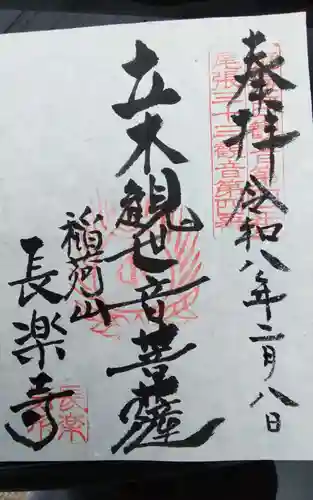 奉拝
令和八年二月八日
尾張三十三観音第四番
立木観世音菩薩
稲荷山
長楽寺